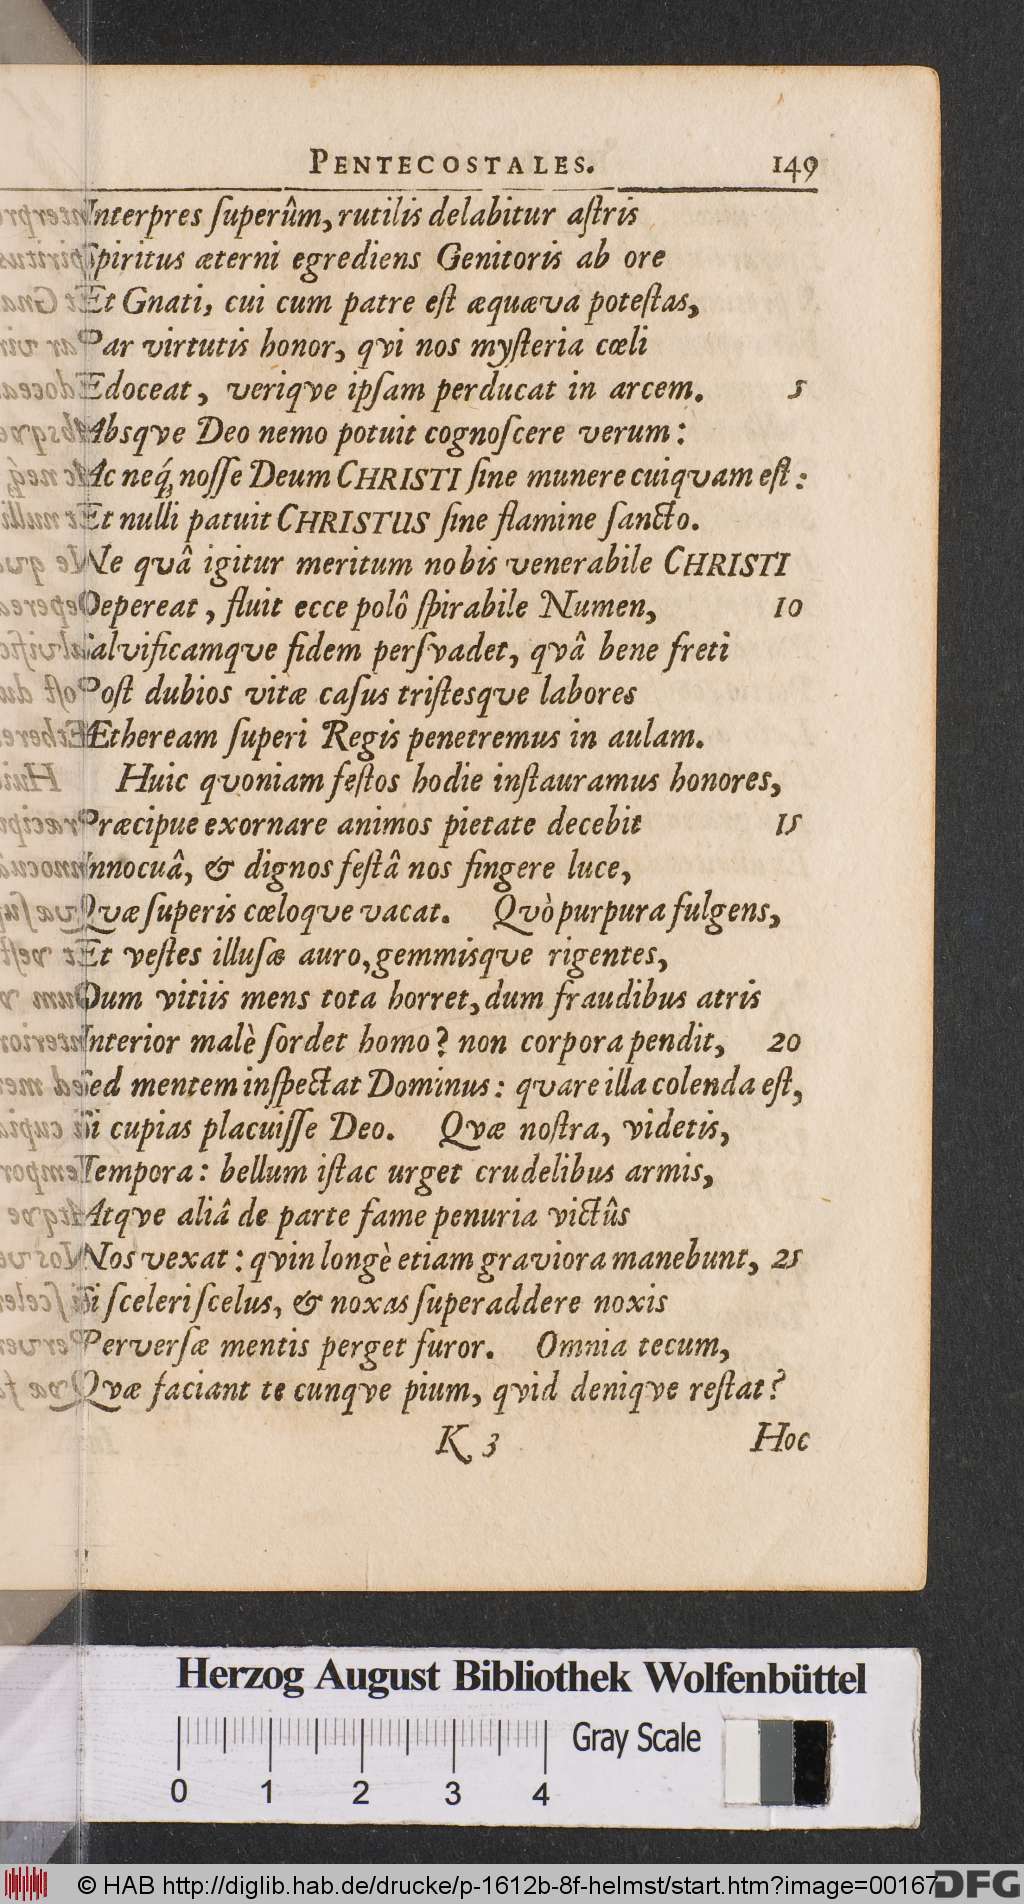 PENTECOSTALES. 149
Interpres ſuperûm, rutilis delabitur aſtris
Spiritus æterni egrediens Genitoris ab ore
Et Gnati, cui cum patre eſt æquæva poteſtas,
Par virtutis honor, qvi nos myſteria cœli
Edoceat, veriqve ipſam perducat in arcem. 5
Absqve Deo nemo potuit cognoſcere verum:
Ac neq́ꝫ noſſe Deum CHRISTI ſine munere cuiqvam eſt:
Et nulli patuit CHRISTUS ſine flamine ſancto.
Ne quâ igitur meritum nobis venerabile CHRISTI
Depereat, fluit ecce polô ſpirabile Numen, 10
Salvificamque fidem perſvadet, qvâ bene freti
Poſt dubios vitæ caſus triſtesque labores
Ætheream ſuperi Regis penetremus in aulam.
Huic qvoniam feſtos hodie inſtauramus honores,
Præcipue exornare animos pietate decebit 15
Innocuâ, & dignos feſtâ nos fingere luce,
Qvæ ſuperis cœloque vacat. Qvò purpura fulgens,
Et veſtes illuſæ auro, gemmisque rigentes,
Dum vitiis mens tota horret, dum fraudibus atris
Interior malè ſordet homo? non corpora pendit, 20
Sed mentem inſpectat Dominus: qvare illa colenda eſt,
Si cupias placuiſſe Deo. Qvæ noſtra, videtis,
Tempora: bellum iſtac urget crudelibus armis,
Atqve aliâ de parte fame penuria victûs
Nos vexat: qvin longè etiam graviora manebunt, 25
Si ſceleri ſcelus, & noxas ſuperaddere noxis
Perverſæ mentis perget furor. Omnia tecum,
Qvæ faciant te cunqve pium, qvid deniqve reſtat?
K 3 Hoc
Herzog August Bibliothek Wolfenbüttel
Gray Scale
0 1 2 3 4
© HAB http://diglib.hab.de/drucke/p-1612b-8f-helmst/start.htm?image=00167
DFG